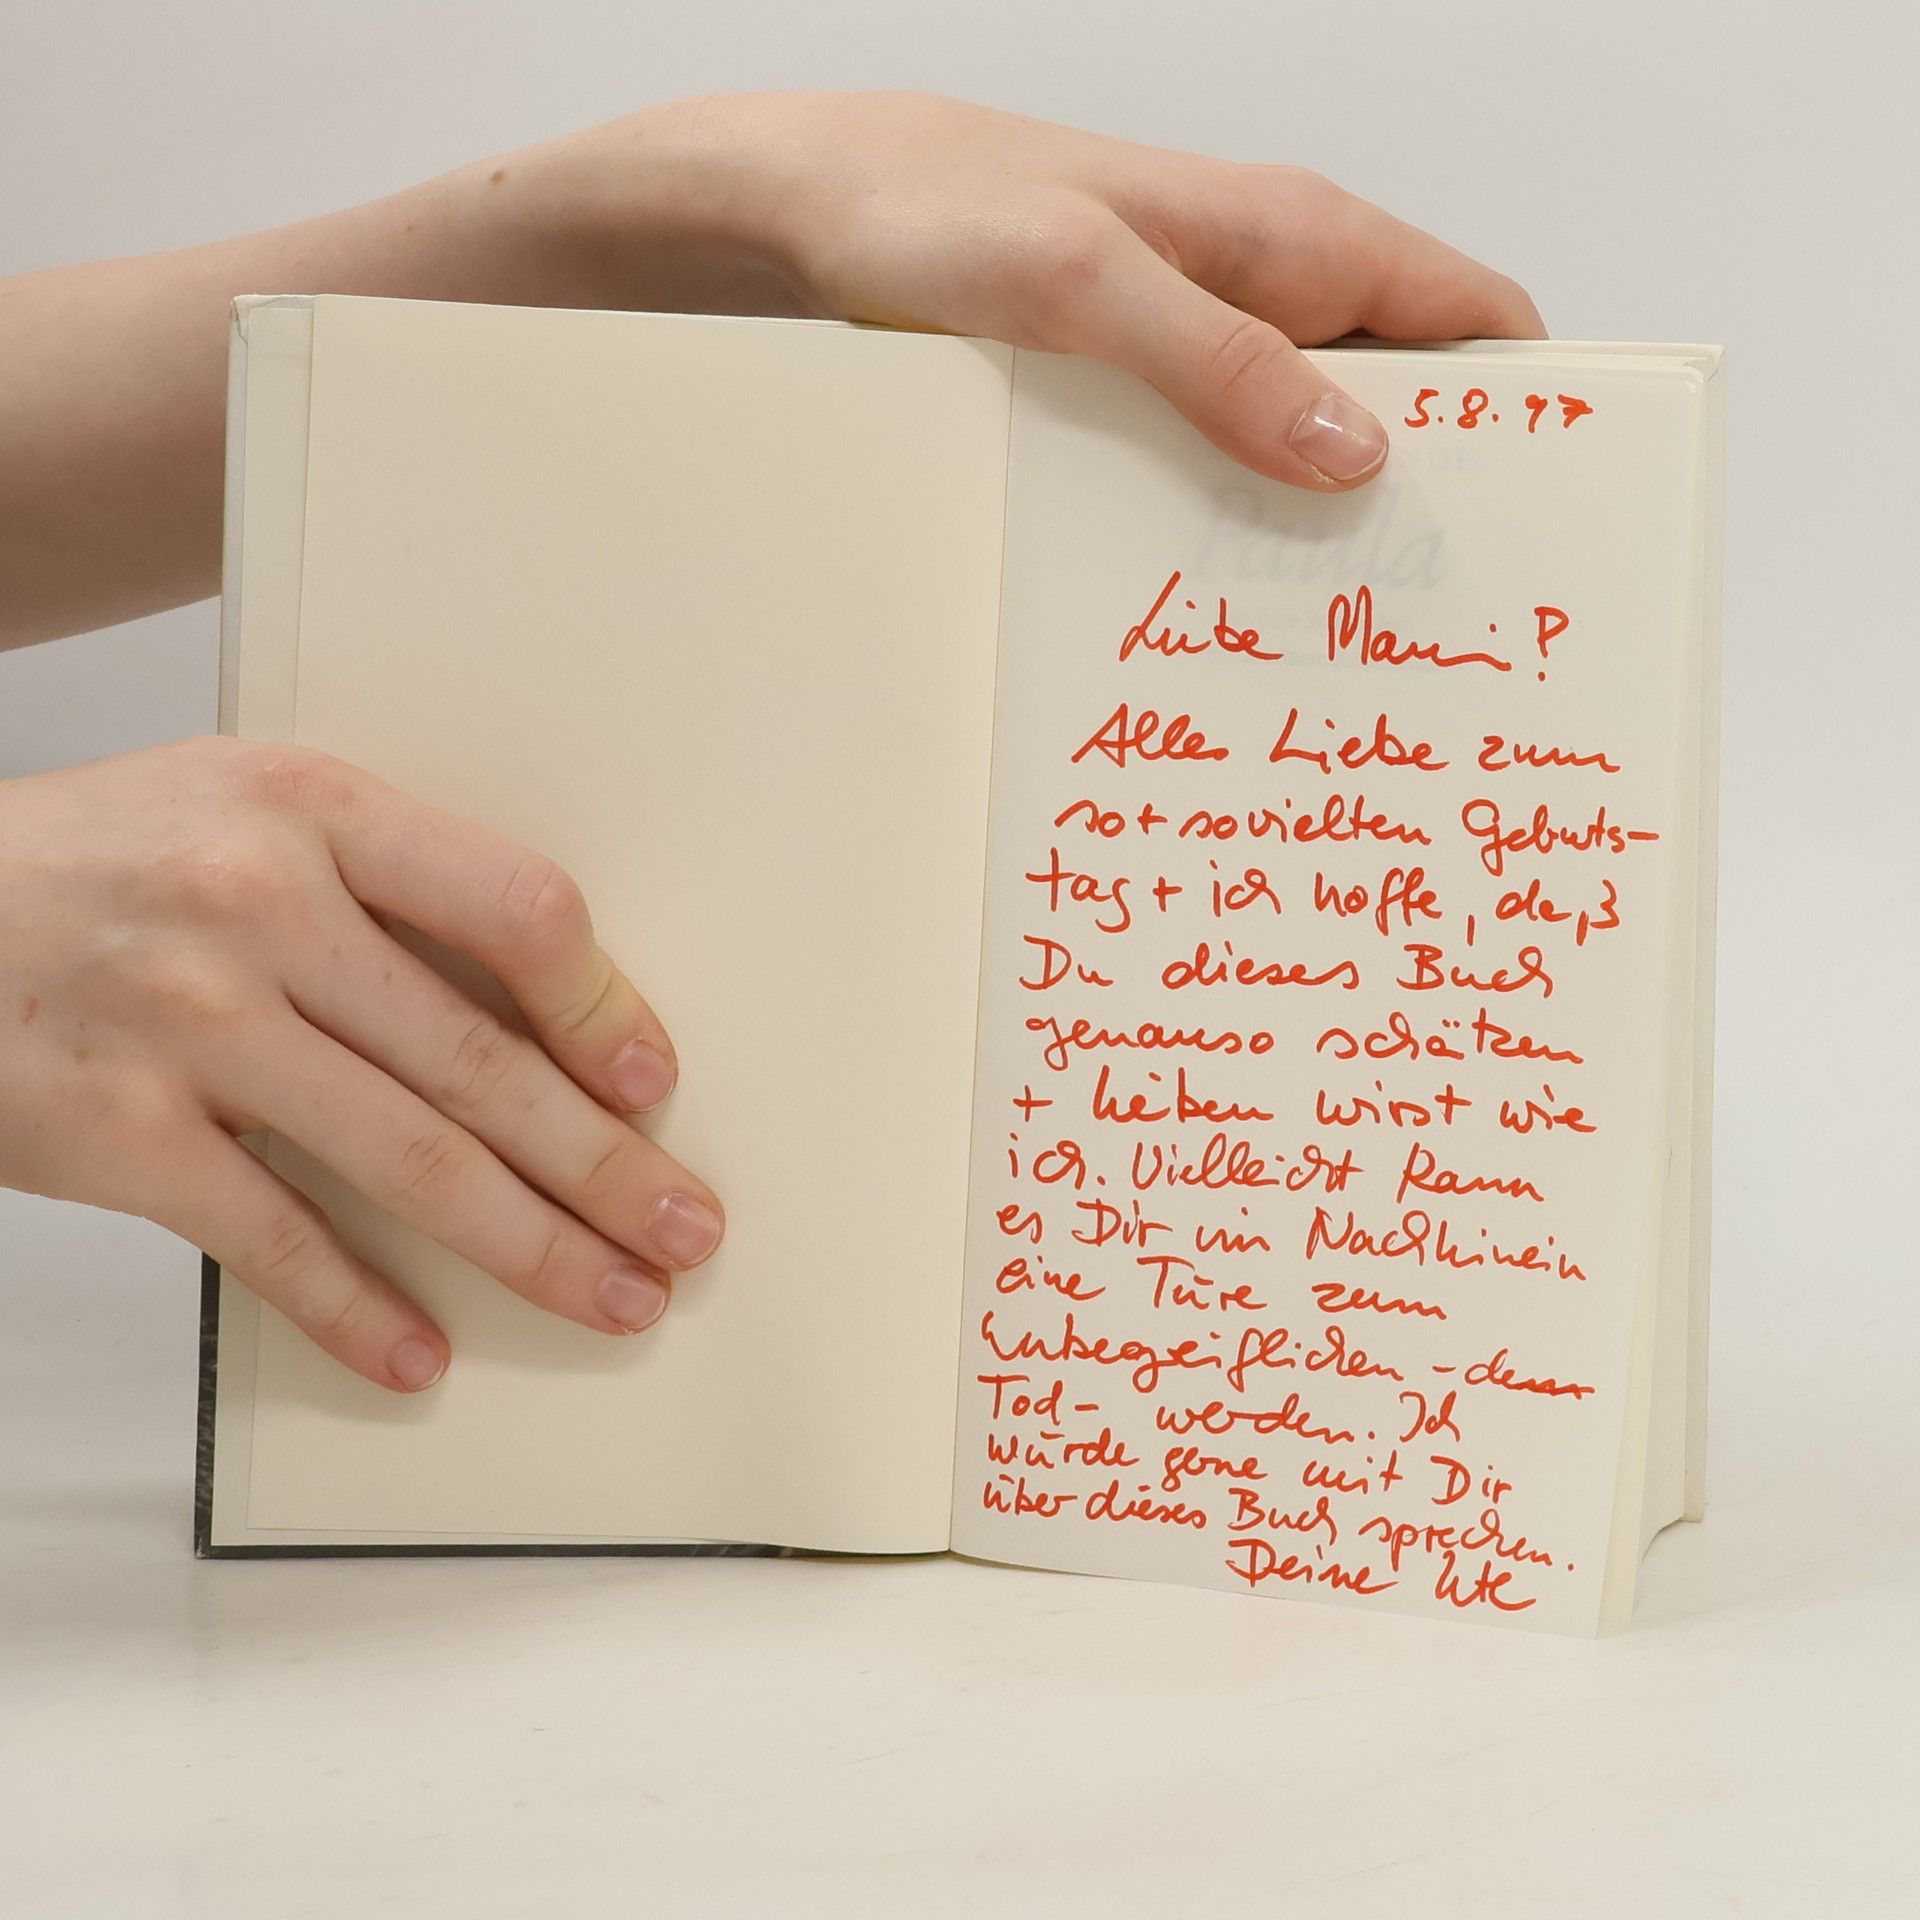 5.8.97
Paula
Liebe Mami!
Alles Liebe zum
so+sovielten Geburts-
tag + ich hoffe, daß
Du dieses Buch
genauso schätzen
+ lieben wirst wie
ich. Vielleicht kann
es Dir im Nachhinein
eine Türe zum
Unbegreiflichen - dem
Tod - werden. Ich
würde gerne mit Dir
über dieses Buch sprechen.
Deine Ute